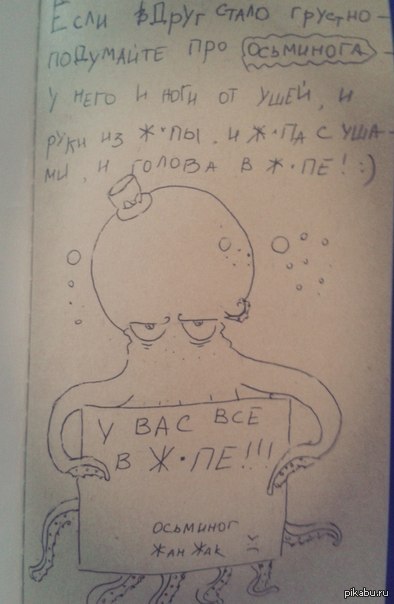 Если вдруг стало грустно -
подумайте про осьминога -
у него и ноги от ушей, и
руки из ж•пы, и ж•па с уша-
ми, и голова в ж•пе! :)
У ВАС ВСЕ
В Ж•ПЕ!!!
ОСЬМИНОГ
ЖАН ЖАК
pikabu.ru